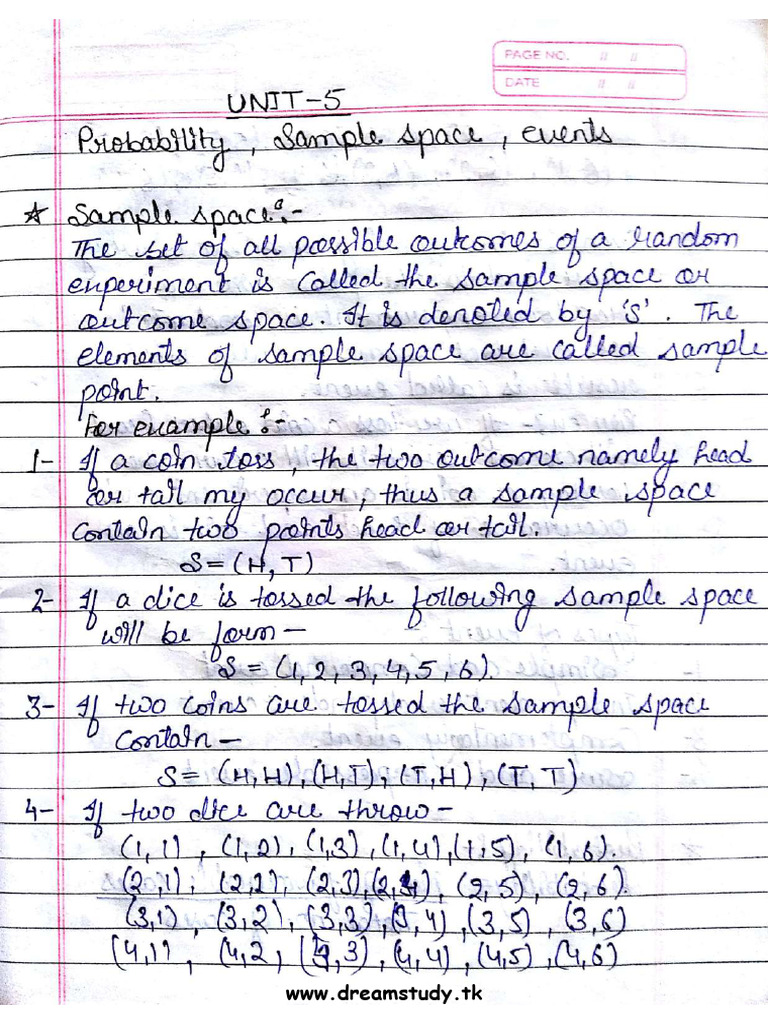 PAGE NO. // //
DATE // //
UNIT-5
Probability, Sample space, events
☆ Sample space:-
The set of all possible outcomes of a random
experiment is called the sample space or
outcome space. It is denoted by 'S'. The
elements of sample space are called sample
point.
For example:-
1- If a coin toss, the two outcome namely head
or tail my occur, thus a sample space
contain two points head or tail.
S = (H, T)
2- If a dice is tossed the following sample space
will be form -
S = (1, 2, 3, 4, 5, 6).
3- If two coins are tossed the sample space
contain -
S = (H,H), (H,T), (T,H), (T,T)
4- If two dice are throw -
(1,1), (1,2), (1,3), (1,4), (1,5), (1,6).
(2,1), (2,2), (2,3), (2,4), (2,5), (2,6).
(3,1), (3,2), (3,3), (3,4), (3,5), (3,6)
(4,1), (4,2, (4,3), (4,4), (4,5), (4,6)
www.dreamstudy.tk